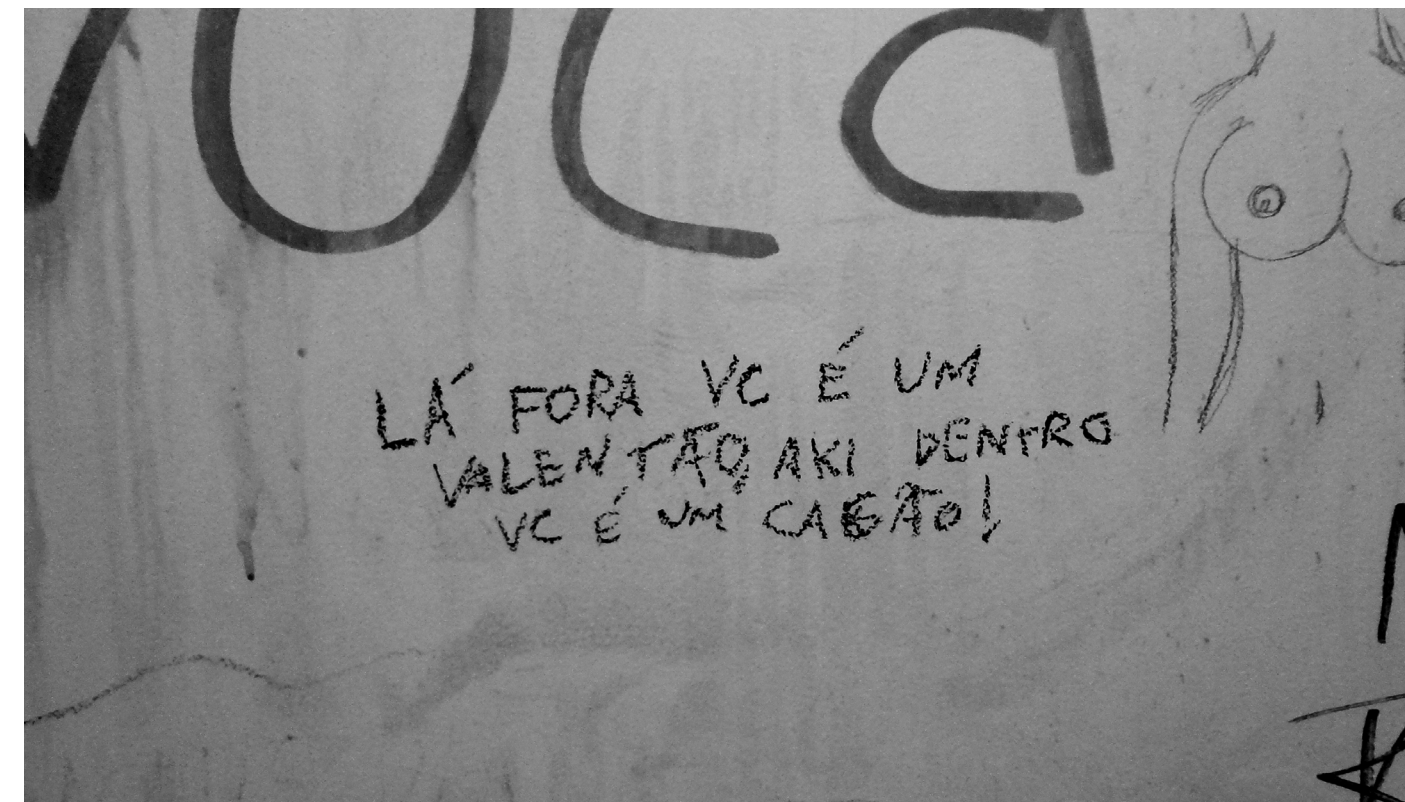 LÁ FORA VC É UM
VALENTÃO, AKI DENTRO
VC É UM CAGÃO!